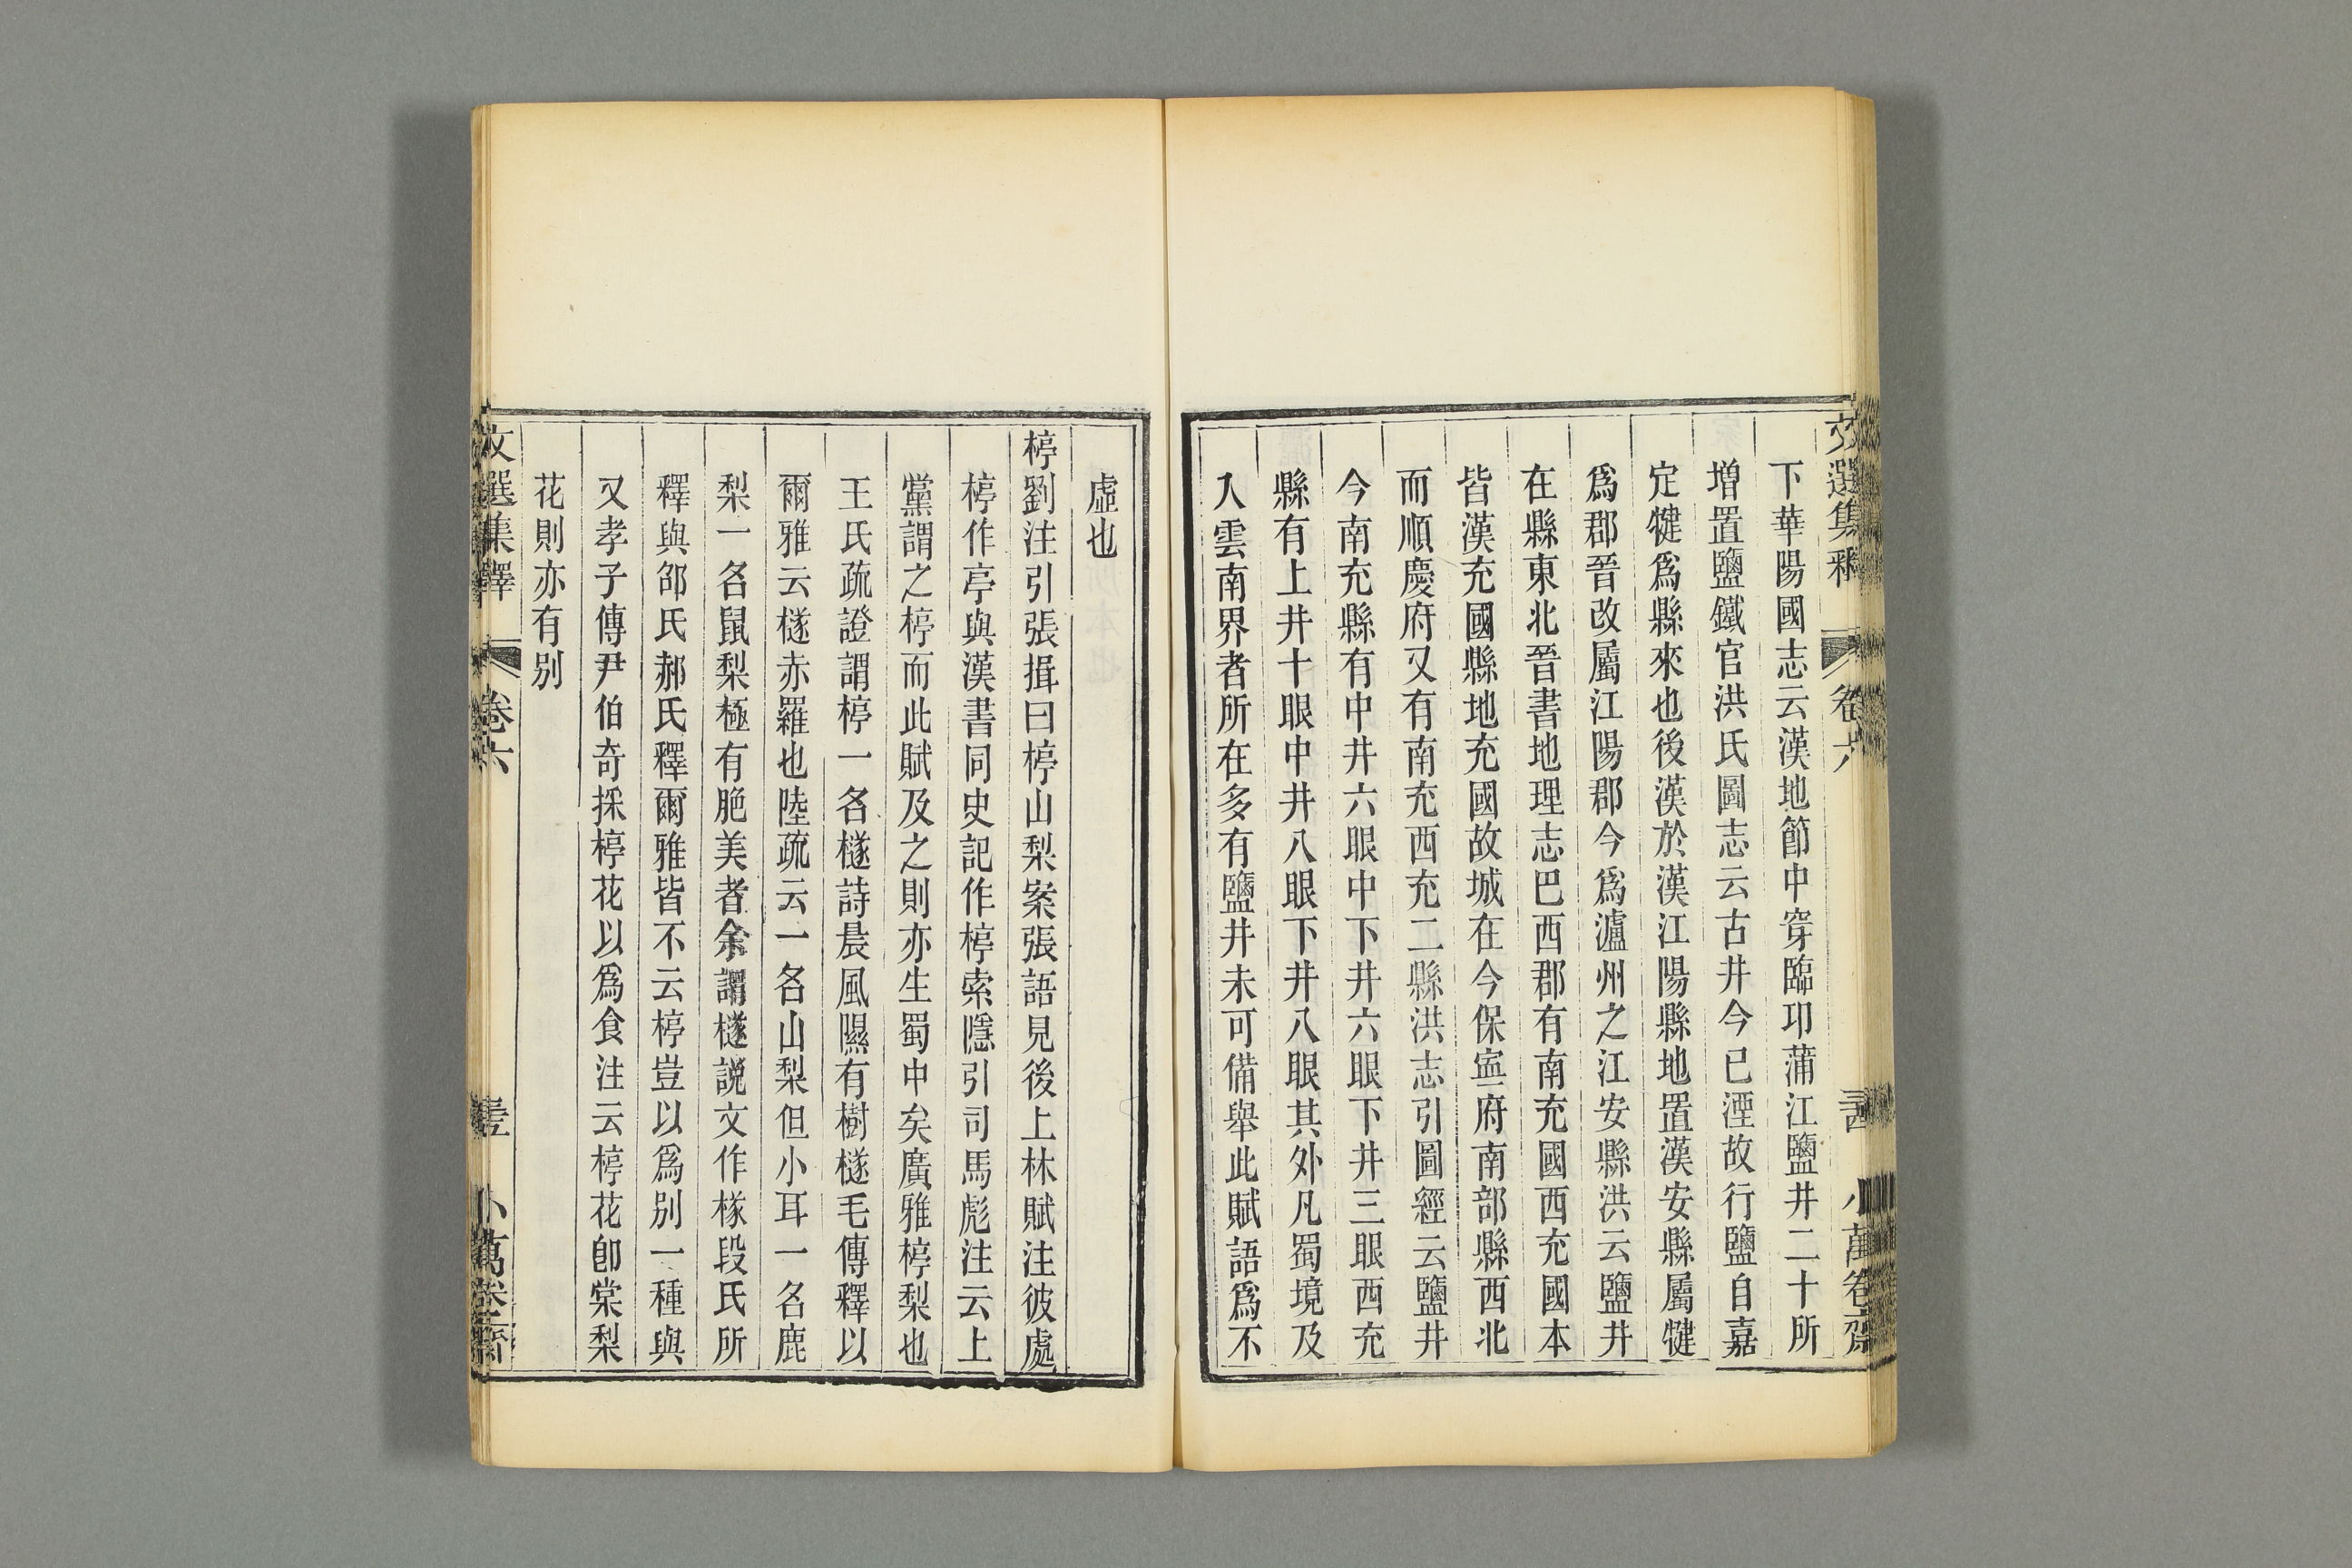 文選集釋 卷六 三四 小萬卷齋
下華陽國志云漢地節中穿臨邛蒲江鹽井二十所
增置鹽鐵官洪氏圖志云古井今已湮故行鹽自嘉
定犍爲縣來也後漢於漢江陽縣地置漢安縣屬犍
爲郡晉改屬江陽郡今爲瀘州之江安縣洪云鹽井
在縣東北晉書地理志巴西郡有南充國西充國本
皆漢充國縣地充國故城在今保寍府南部縣西北
而順慶府又有南充西充二縣洪志引圖經云鹽井
今南充縣有中井六眼中下井六眼下井三眼西充
縣有上井十眼中井八眼下井八眼其外凡蜀境及
入雲南界者所在多有鹽井未可備舉此賦語爲不
虛也
楟劉注引張揖曰楟山梨案張語見後上林賦注彼處
楟作亭與漢書同史記作楟索隱引司馬彪注云上
黨謂之楟而此賦及之則亦生蜀中矣廣雅楟梨也
王氏疏證謂楟一名檖詩晨風隰有樹檖毛傳釋以
爾雅云檖赤羅也陸疏云一名山梨但小耳一名鹿
梨一名鼠梨極有脃美者余謂檖說文作㯌段氏所
釋與邵氏郝氏釋爾雅皆不云楟豈以爲别一種與
又孝子傳尹伯奇採楟花以爲食注云楟花卽棠梨
花則亦有别
文選集釋 卷六 小萬卷齋